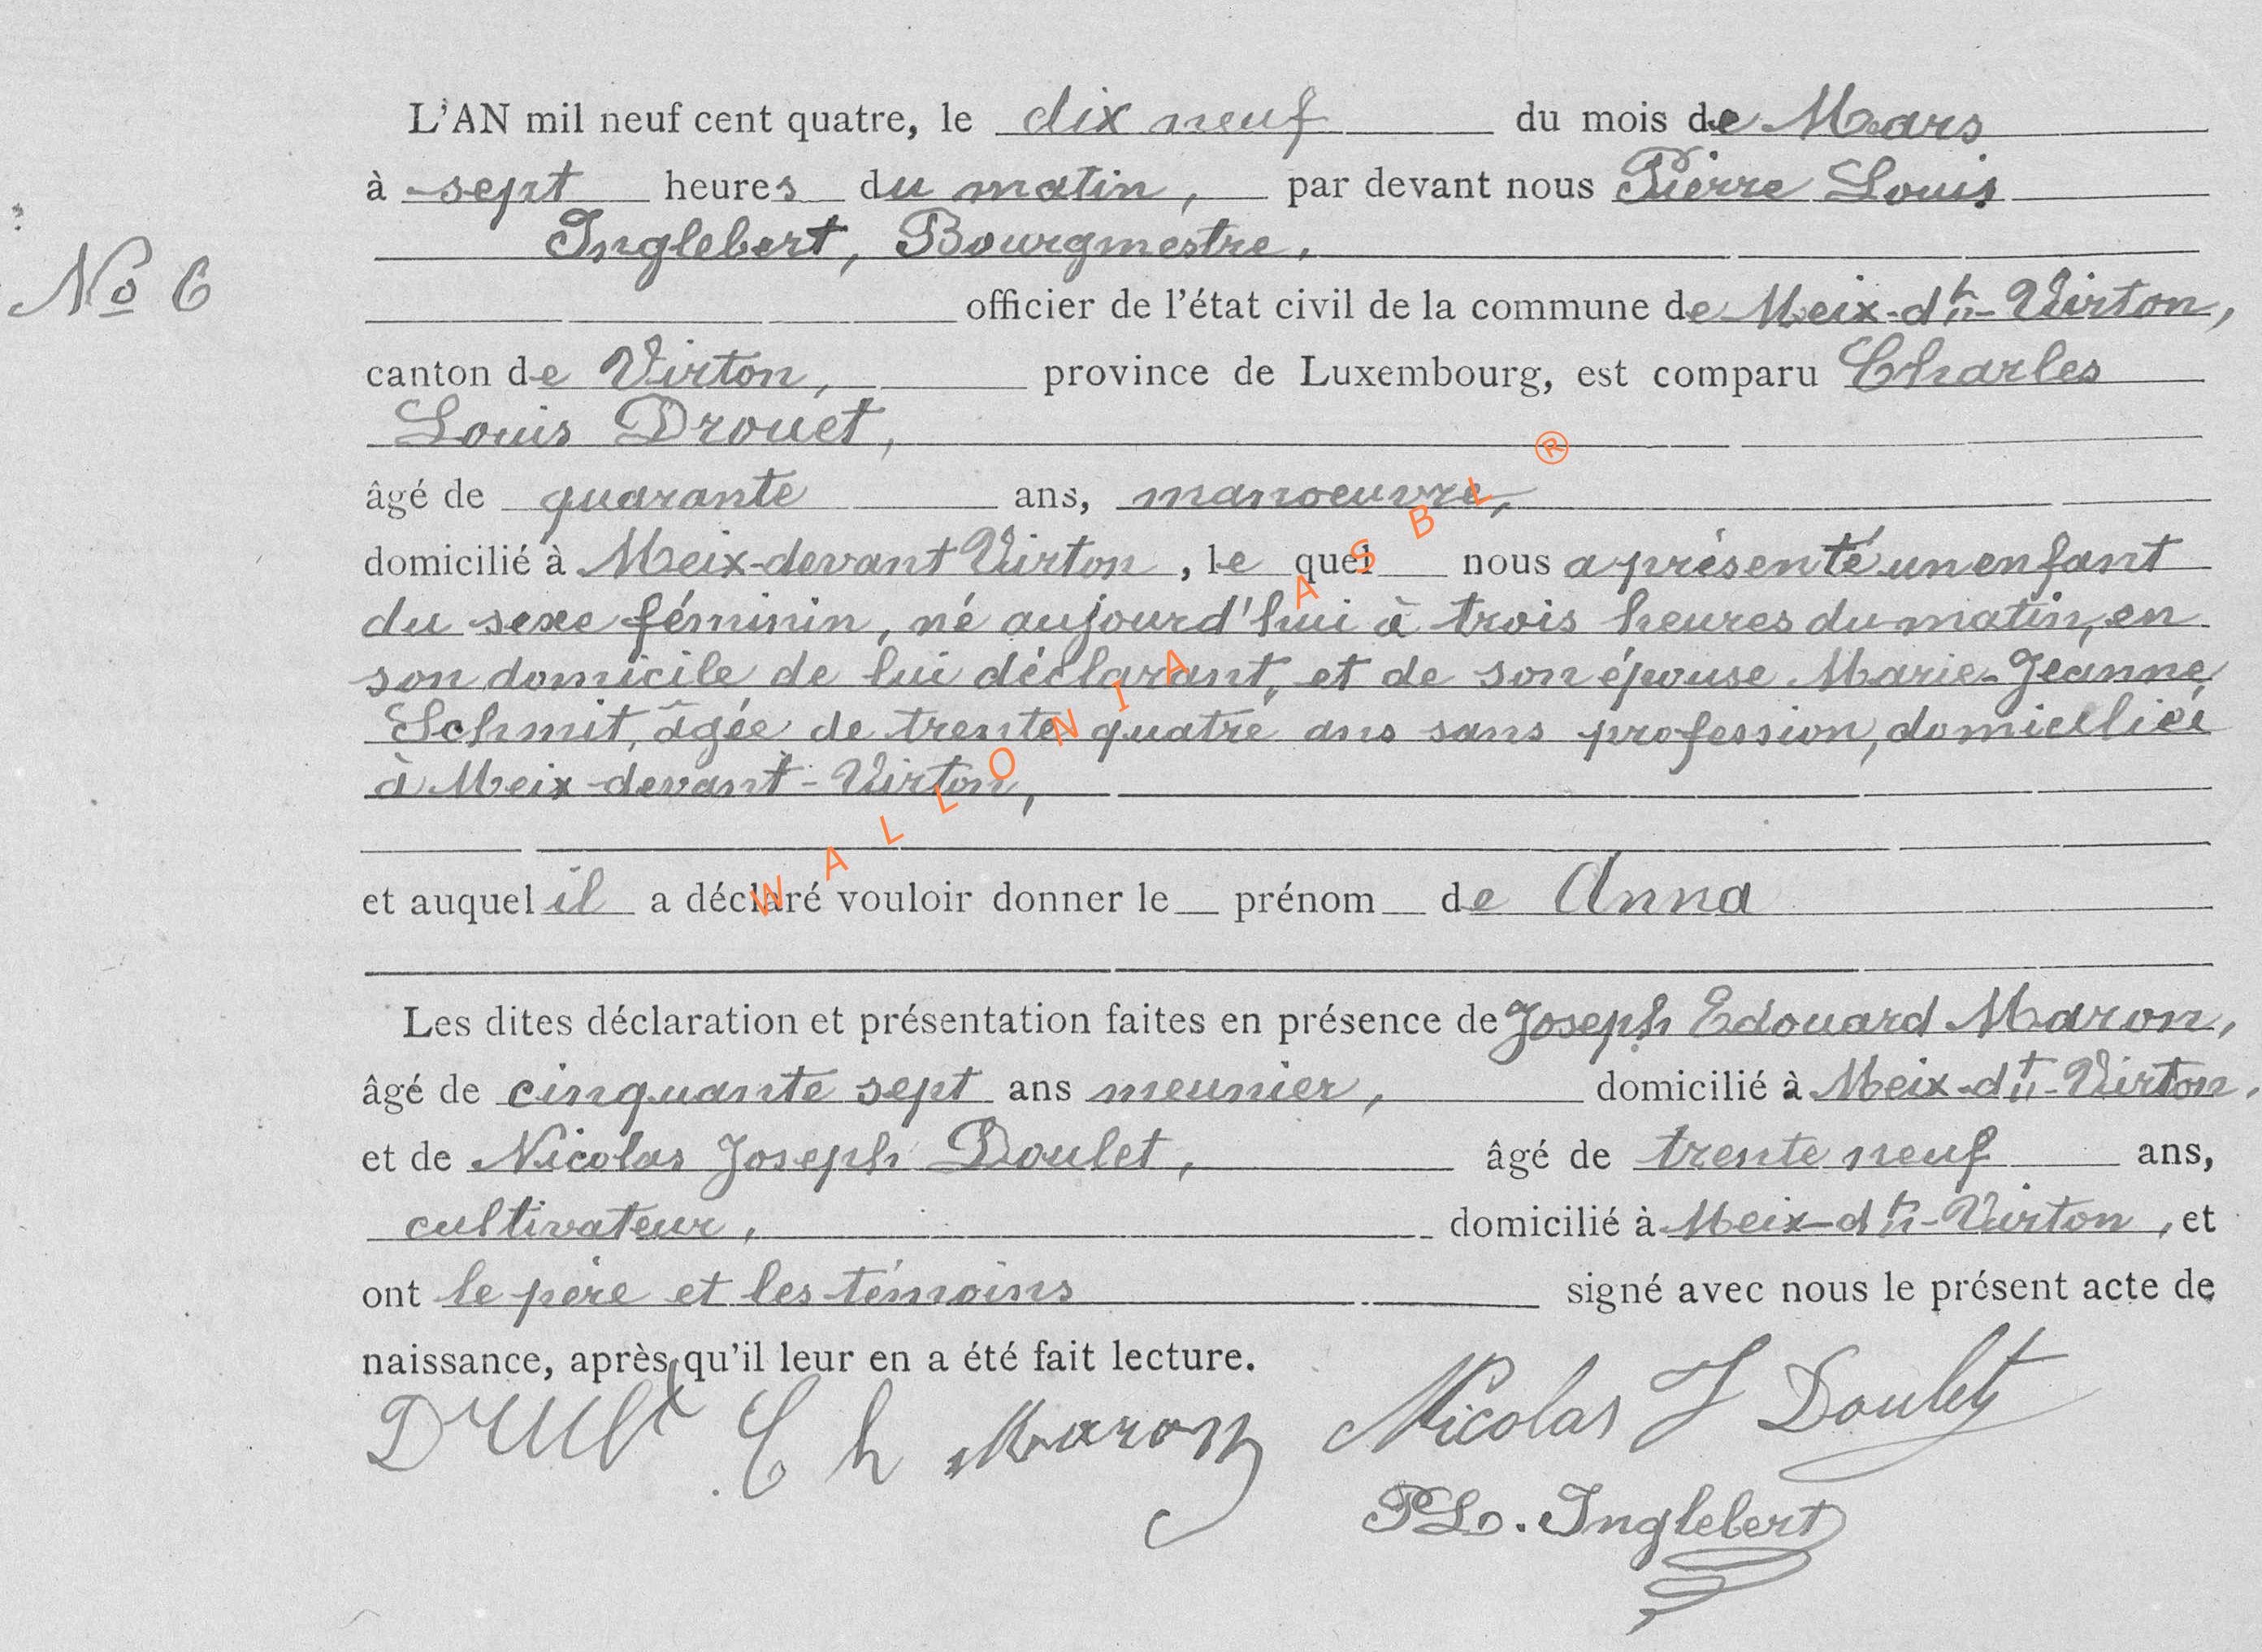 L'AN mil neuf cent quatre, le dix neuf du mois de Mars
à sept heures du matin, par devant nous Pierre Louis
Inglebert, Bourgmestre,
No 6
officier de l'état civil de la commune de Meix-dt-Virton,
canton de Virton, province de Luxembourg, est comparu Charles
Louis Drouet,
âgé de quarante ans, manoeuvre,
domicilié à Meix-devant Virton, le quel nous a présenté un enfant
du sexe féminin, né aujourd'hui à trois heures du matin, en
son domicile de lui déclarant, et de son épouse Marie-Jeanne
Schmit, âgée de trente quatre ans sans profession, domicilliée
à Meix-devant-Virton,
et auquel il a déclaré vouloir donner le prénom de Anna
Les dites déclaration et présentation faites en présence de Joseph Edouard Maron,
âgé de cinquante sept ans meunier, domicilié à Meix-dt-Virton,
et de Nicolas Joseph Doulet, âgé de trente neuf ans,
cultivateur, domicilié à Meix-dt-Virton, et
ont le père et les témoins signé avec nous le présent acte de
naissance, après qu'il leur en a été fait lecture.
Ch Maron Nicolas J Doulet
PL. Inglebert
WALLONIA ASBL ®